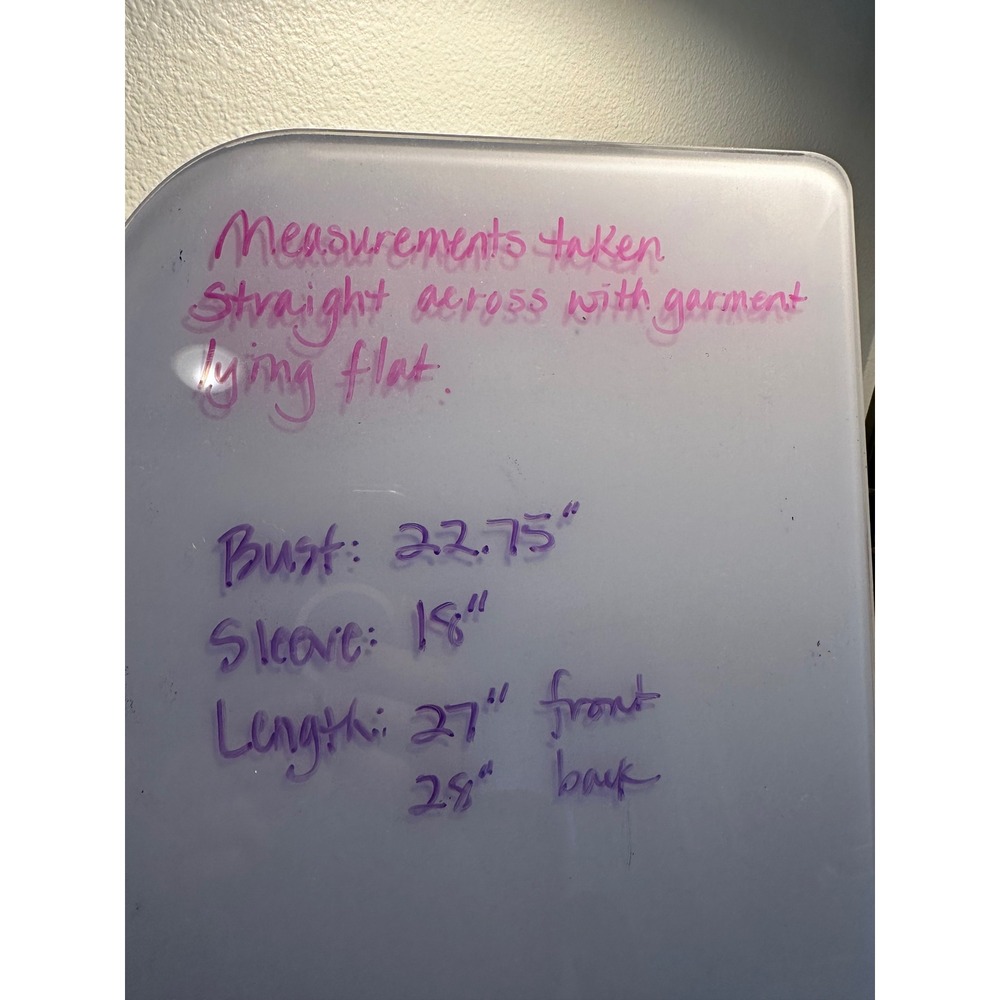 Measurements taken
straight across with garment
lying flat.
Bust: 22.75"
Sleeve: 18"
Length: 27" front
28" back